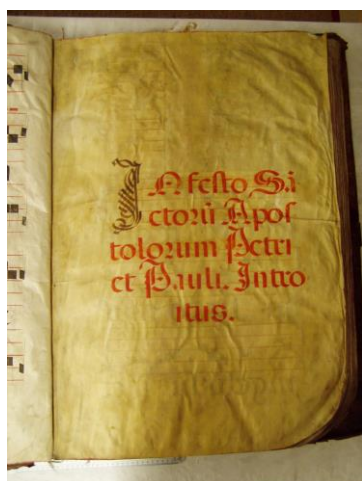 IN festo Sā
ctorū Apos
tolorum Petri
et Pauli. Intro
itus.